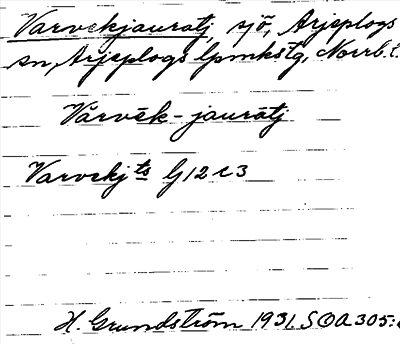 Varvekjauratj, sjö, Arjeplogs
sn, Arjeplogs lpmkstg, Norrb.l.
Várvēk-jaurātj
Varvekj ts G12 c3
H. Grundström 1931. SOA 305: